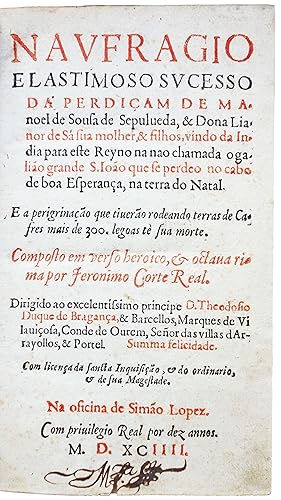 NAVFRAGIO
E LASTIMOSO SVCESSO
DA PERDIÇAM DE MA-
noel de Sousa de Sepulueda, & Dona Lia-
nor de Sá sua molher, & filhos, vindo da In-
dia para este Reyno na nao chamada o ga-
lião grande S. Ioão que se perdeo no cabo
de boa Esperança, na terra do Natal.
E a perigrinação que tiuerão rodeando terras de Ca-
fres mais de 300. legoas tè sua morte.
Composto em verso heroico, & octaua ri-
ma por Jeronimo Corte Real.
Dirigido ao excelentissimo principe D. Theodosio
Duque de Bragança, & Barcellos, Marques de Vi
lauiçosa, Conde de Ourem, Señor das villas d'Ar-
rayollos, & Portel. Summa felicidade.
Com licença da sancta Inquisição, & do ordinario,
& de sua Magestade.
Na oficina de Simão Lopez.
Com priuilegio Real por dez annos.
M. D. XCIIII.